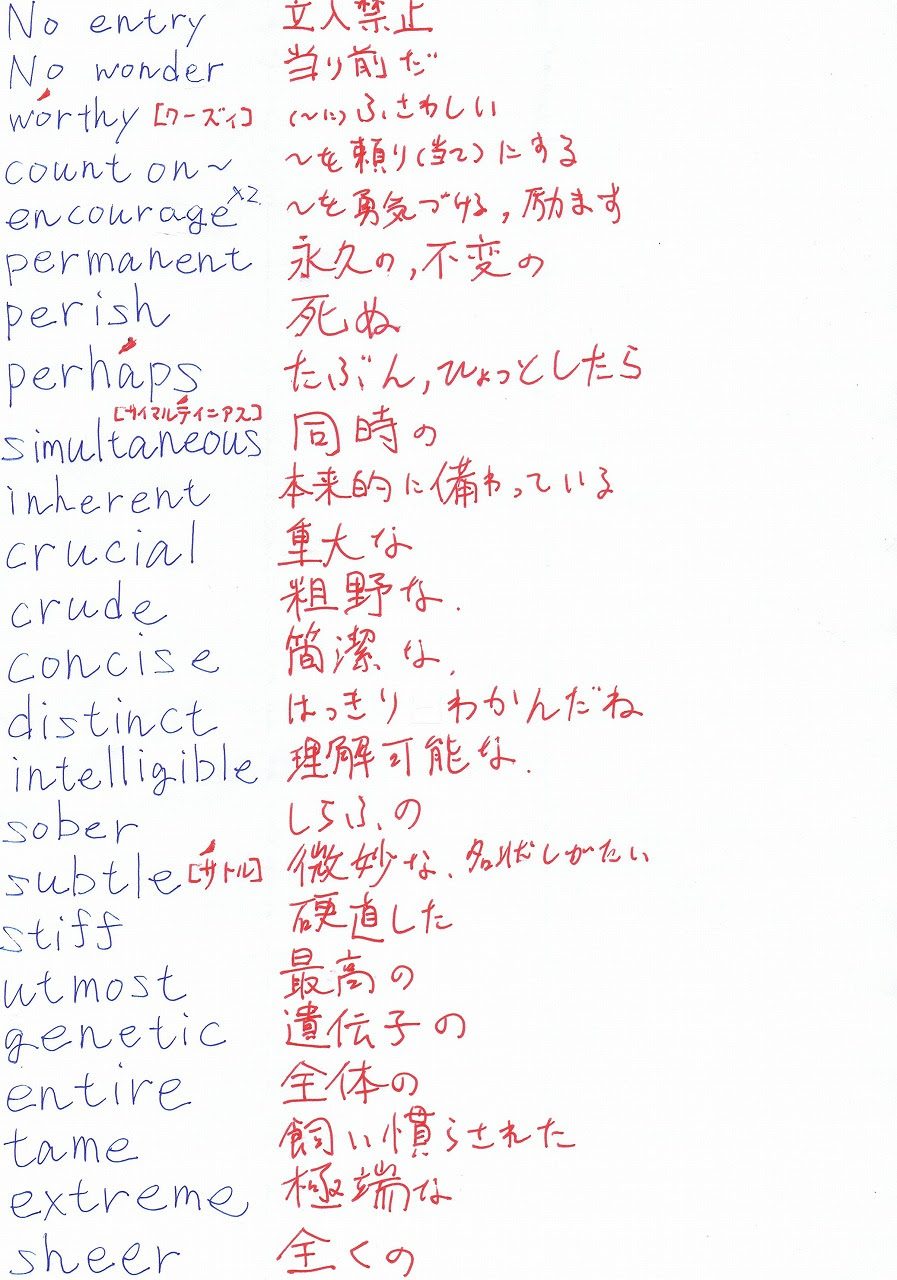 No entry 立入禁止
No wonder 当り前だ
worthy [ワーズィ] (〜に)ふさわしい
count on〜 〜を頼り(当て)にする
encourage×2 〜を勇気づける, 励ます
permanent 永久の, 不変の
perish 死ぬ
perhaps たぶん, ひょっとしたら
[サイマルテイニアス]
simultaneous 同時の
inherent 本来的に備わっている
crucial 重大な
crude 粗野な.
concise 簡潔な.
distinct はっきり わかんだね
intelligible 理解可能な.
sober しらふの
subtle [サトル] 微妙な、名状しがたい
stiff 硬直した
utmost 最高の
genetic 遺伝子の
entire 全体の
tame 飼い慣らされた
extreme 極端な
sheer 全くの